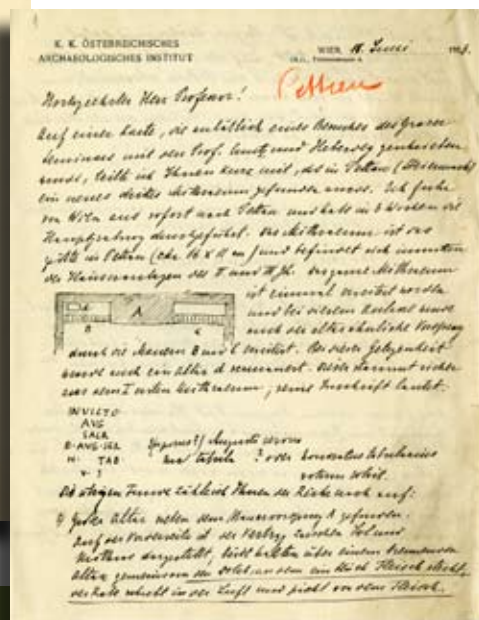 K. K. ÖSTERREICHISCHES
ARCHAEOLOGISCHES INSTITUT
WIEN, Juni
Pettau
Hochgeehrter Herr Professor!
Auf einer Karte, die anläßlich eines Besuches des Grazer
Seminars mit den Prof. Cuntz und Heberdey geschrieben
wurde, teilte ich Ihnen kurz mit, daß in Pettau (Steiermark)
ein neues drittes Mithraeum gefunden wurde. Ich fuhr
von Wien aus sofort nach Pettau und habe in 3 Wochen die
Hauptgrabung durchgeführt. Das Mithraeum ist das
größte in Pettau (cha 16 x 11 m) und befindet sich inmitten
der Häuseranlagen des II und III Jh. Das ganze Mithraeum
ist einmal erweitert worden
und bei diesem wurde
auch der alte Vorsprung
A
B
durch die Mauern B und C erweitert. Bei dieser Gelegenheit
wurde auch ein Altar d vermauert. Dieser stammt sicher
aus dem I Mithraeum; seine Inschrift lautet:
INVICTO
AVG
SACR
AVG
TAB
Augusti servus
tabula ? oder tabularius
votum solvit.
Funde zähle ich Ihnen der Reihe nach auf:
1) Großer Altar neben dem Mauervorsprung A gefunden.
Auf der Vorderseite ist der Vertrag zwischen Sol und
Mithras dargestellt, beide halten über einem brennenden
Altar gemeinsam den Dolch an dem ein Stück Fleisch steckt,
der Rabe in der Luft und pickt von dem Fleisch.